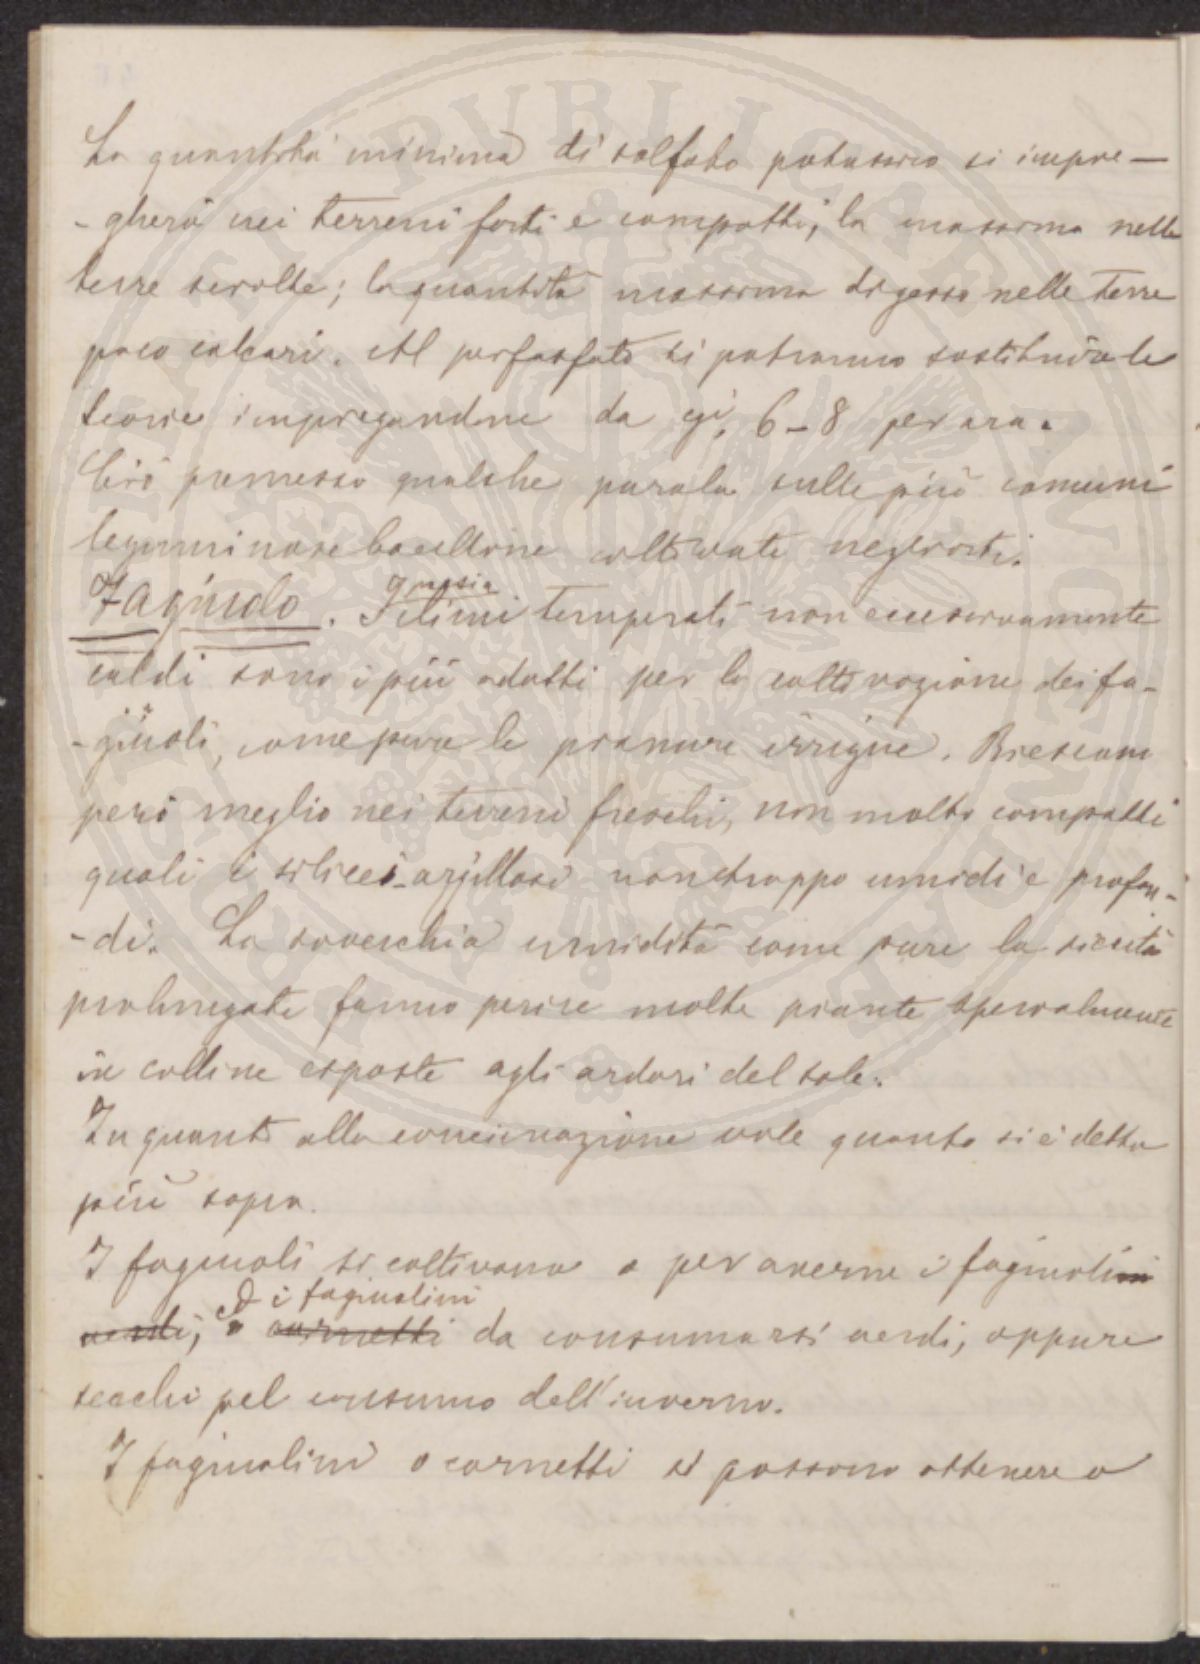 La quantità minima di solfato potassico si impie-
-gherà nei terreni forti e compatti; la massima nelle
terre sciolte; la quantità massima di gesso nelle terre
poco calcari. Al perfosfato si potranno sostituire le
scorie impiegandone da Cgi. 6-8 per ara.
Ciò premesso qualche parola sulle più comuni
leguminose baccelline coltivate negli orti.
Fagiuolo. I climi temperati non eccessivamente
caldi sono i più adatti per la coltivazione dei fa-
-giuoli, come pure le pianure irrigue. Riescono
però meglio nei terreni freschi, non molto compatti
quali i silicei-argillosi non troppo umidi e profon-
-di. La soverchia umidità come pure la siccità
prolungate fanno perire molte piante specialmente
in colline esposte agli ardori del sole.
In quanto alla concimazione vale quanto si è detto
più sopra.
I fagiuoli si coltivano o per averne i fagiuolini
ed i fagiuolini
verdi, o cornetti da consumarsi verdi, oppure
secchi pel consumo dell'inverno.
I fagiuolini o cornetti si possono ottenere o